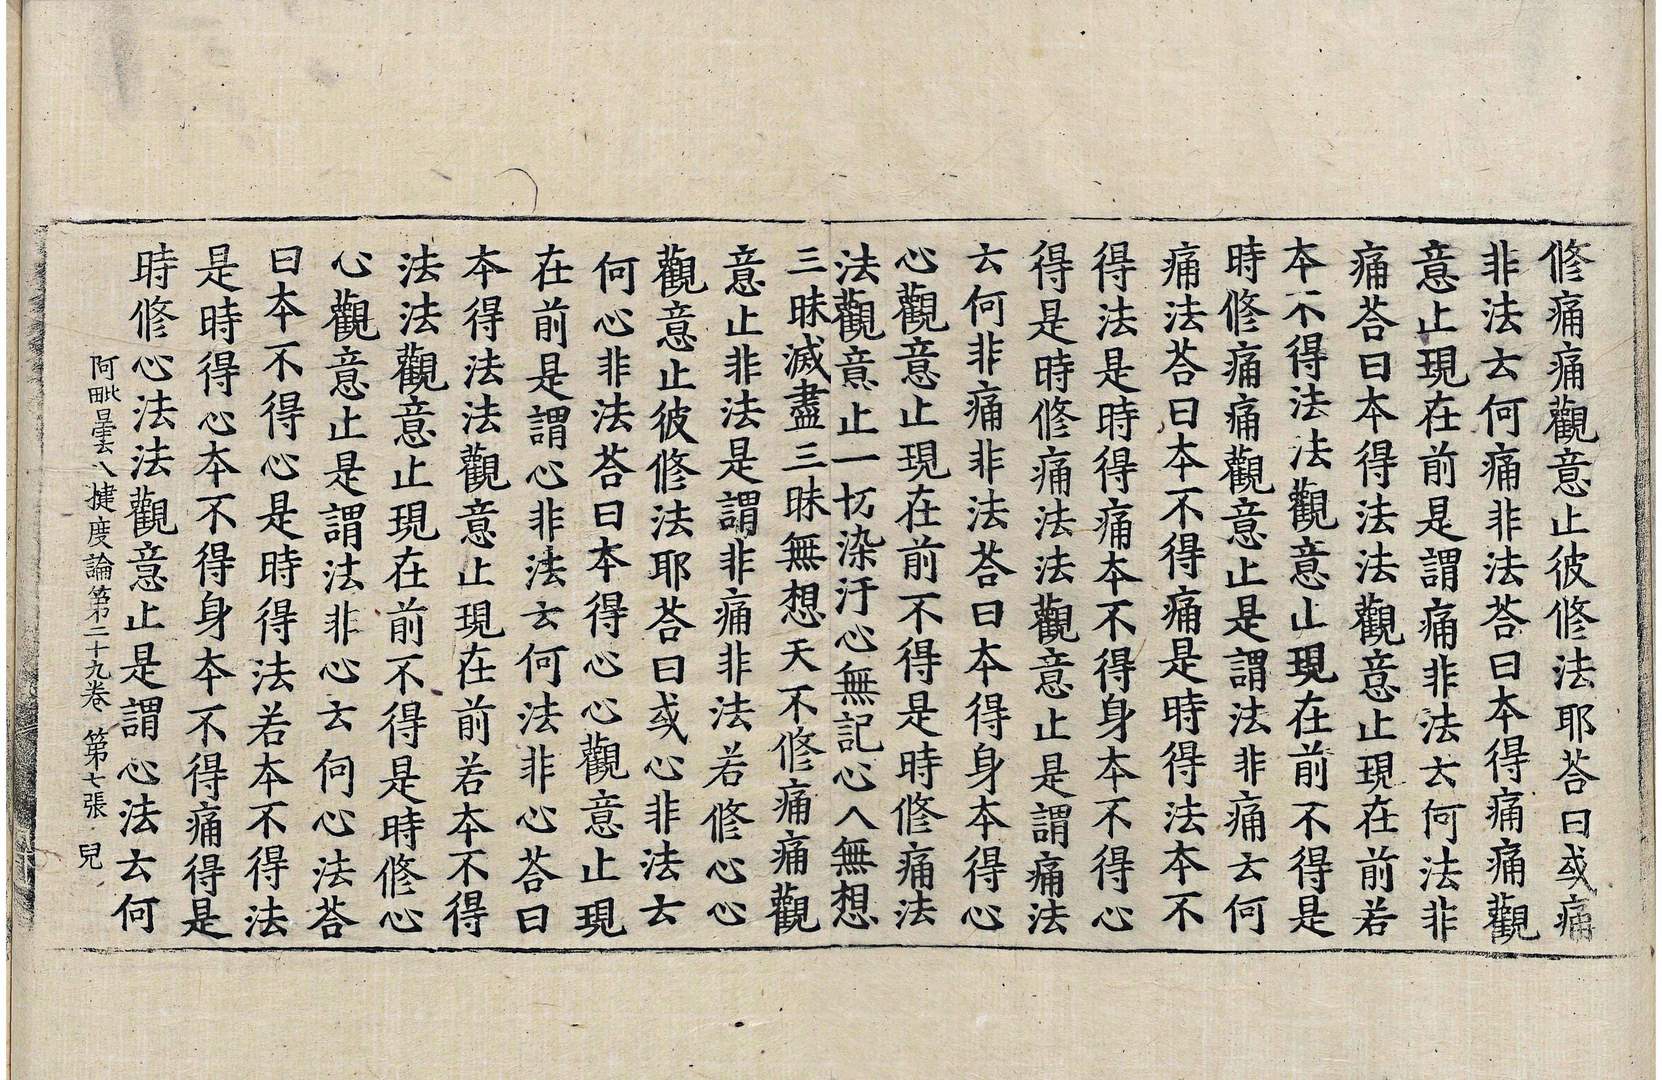 修痛痛觀意止彼修法耶荅曰或痛
非法云何痛非法荅曰本得痛痛觀
意止現在前是謂痛非法云何法非
痛荅曰本得法法觀意止現在前若
本不得法法觀意止現在前不得是
時修痛痛觀意止是謂法非痛云何
痛法荅曰本不得痛是時得法本不
得法是時得痛本不得身本不得心
得是時修痛法法觀意止是謂痛法
云何非痛非法荅曰本得身本得心
心觀意止現在前不得是時修痛法
法觀意止一切染汙心無記心入無想
三昧滅盡三昧無想天不修痛痛觀
意止非法是謂非痛非法若修心心
觀意止彼修法耶荅曰或心非法云
何心非法荅曰本得心心觀意止現
在前是謂心非法云何法非心荅曰
本得法法觀意止現在前若本不得
法法觀意止現在前不得是時修心
心觀意止是謂法非心云何心法荅
曰本不得心是時得法若本不得法
是時得心本不得身本不得痛得是
時修心法法觀意止是謂心法云何
阿毗曇八揵度論第二十九卷 第七張 兒